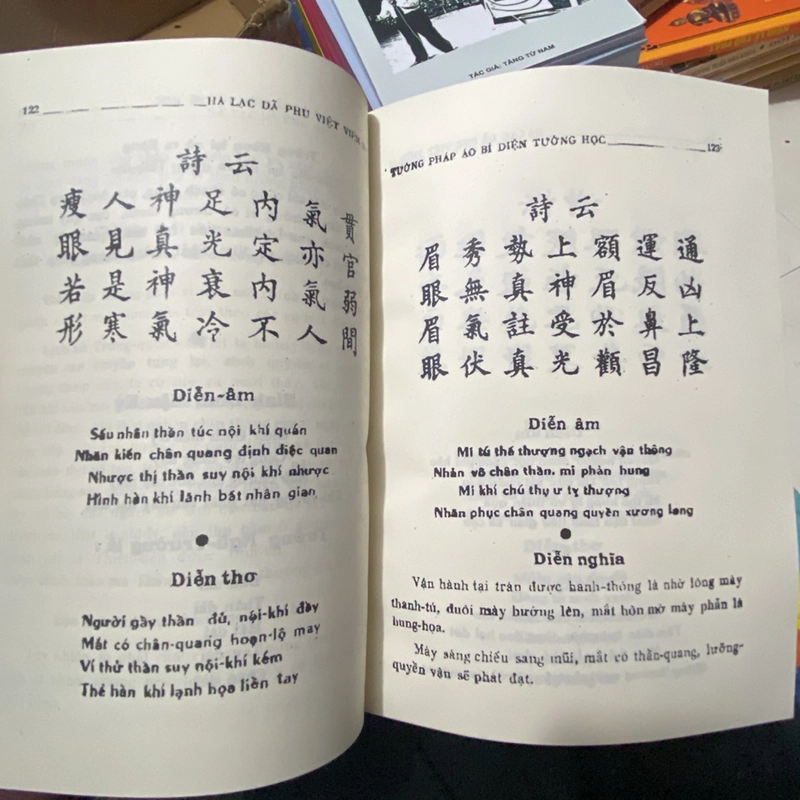 TÁC GIẢ: TĂNG TỪ NAM
122 HÀ LẠC DÃ PHU VIỆT
詩云
瘦人神足內氣貫
眼見真光定亦官
若是神衰內氣弱
形寒氣冷不人間
Diễn-âm
Sấu nhân thần túc nội khí quán
Nhãn kiến chân quang định diệc quan
Nhược thị thần suy nội khí nhược
Hình hàn khí lãnh bất nhân gian
Diễn thơ
Người gầy thần đủ, nội-khí đầy
Mắt có chân-quang hoạn-lộ may
Ví thử thần suy nội-khí kém
Thế hàn khí lạnh họa liền tay
TƯỚNG PHÁP ÁO BÍ DIỆN TƯỚNG HỌC 123
詩云
眉秀勢上額運通
眼無真神眉反凶
眉氣註受於鼻上
眼伏真光顴昌隆
Diễn âm
Mi tú thế thượng ngạch vận thông
Nhãn vô chân thần, mi phản hung
Mi khí chú thụ ư tỵ thượng
Nhãn phục chân quang quyền xương long
Diễn nghĩa
Vận hành tại trán được hanh-thông là nhờ lông mày
thanh-tú, đuôi mày hướng lên, mắt hôn mờ mày phản là
hung-họa.
Mày sáng chiếu sang mũi, mắt có thần-quang, lưỡng-
quyền vận sẽ phát đạt.